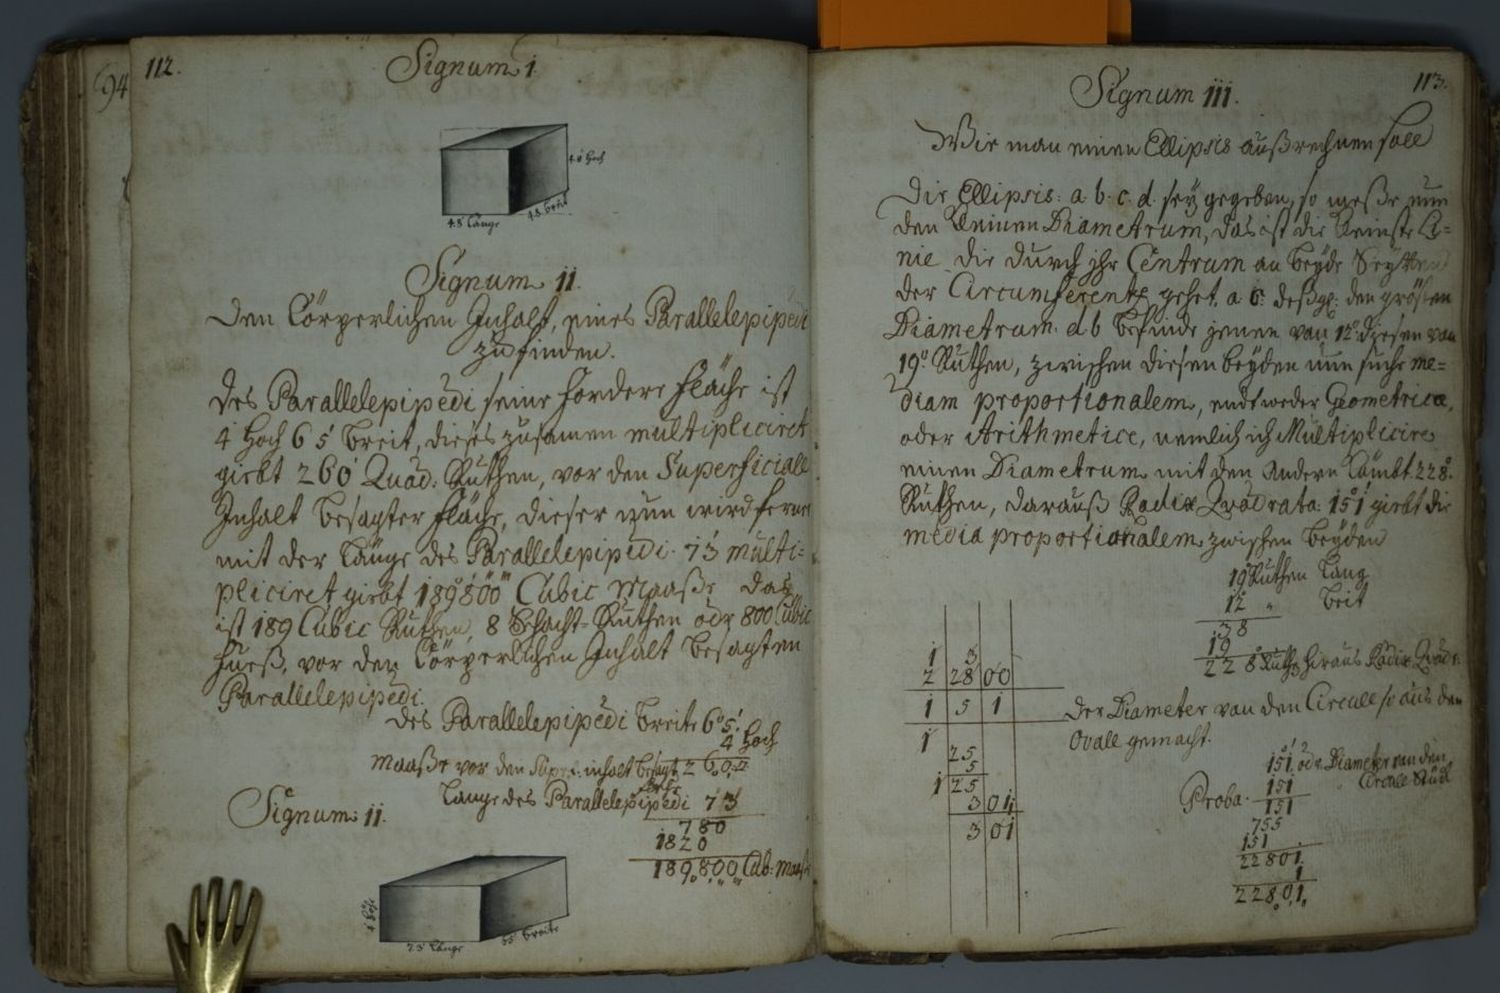 94
112.
Signum I.
4.8 hoch
4.8 Länge
4.8 breit
Signum II.
Den Cörperlichen Inhalt, eines Parallelepipedi
zu finden.
Des Parallelepipedi seine fordere Fläche ist
4 hoch 6 5' breit, dieses zusamen multipliciret
giebt 260' Quad: Ruthen, vor den Superficiall
Inhalt besagter Fläche, dieser nun wird ferner
mit der Länge des Parallelepipedi 73 multi=
pliciret giebt 189800 Cubic Maaße das
ist 189 Cubic Ruthen, 8 Schacht-Ruthen oder 800 Cubic
Fueß, vor den Cörperlichen Inhalt besagten
Parallelepipedi.
Des Parallelepipedi breite 6° 5'.
4 hoch
Maaße vor den inhalt besagt. 2 6 0
Länge des Parallelepipedi 7 3
7 8 0
1 8 2 0
1 8 9. 8 0 0 Cub: Maaß
Signum II.
4 hoch
73 Länge
65 breite
113.
Signum III.
Wie man einen Ellipsis außrechnen soll
Die Ellipsis: a. b. c. d. sey gegeben, so meße nun
den kleinen Diametrum, das ist die kleinste Li=
nie die durch ihr Centrum an beyde Seytten
der Circumferentz gehet. a c. deßgl: den grösten
Diametrum. d b befinde jenen von 12° diesen von
19° Ruthen, zwischen diesen beyden nun suche me=
diam proportionalem, endtweder Geometrice,
oder Arithmetice, nemlich ich Multiplicire
einen Diametrum mit den andern kömbt 228°
Ruthen, darauß Radix Quadrata 151 giebt die
media proportionalem zwischen beyden
19 Ruthen Lang
12 " breit
38
19
228 Ruth: hiraus Radix Quadr:
1 3
2 28 00
1 5 1
1
25
5
1 25
3 01
3 01
Der Diameter von den Circull so aus dem
Ovall gemacht.
151 oder Diameter von den
Circull
Proba. 151
151
755
151
22801.
1
22801.